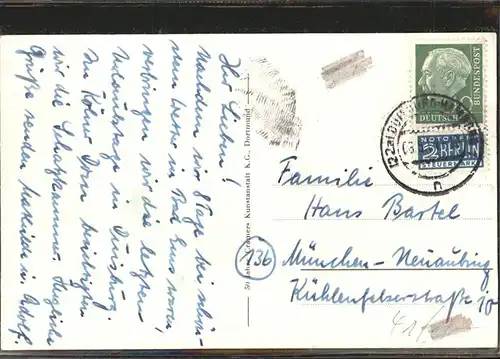 Ihr Lieben!
Nachdem wir 8 Tage bei
dem Wetter in Bad Ems waren,
verbringen wir die letzten
Urlaubstage in Duisburg.
Im Kölner Dom besichtigten
wir die Schatzkammer. Herzliche
Grüße senden u. Adolf.
50 Jahre Cramers Kunstanstalt K.G., Dortmund
DEUTSCHE BUNDESPOST
10
(22a) DUISBURG
n
NOTOPFER
2 BERLIN
STEUERMARKE
Familie
Hans Bartel
136
München-Neuaubing
Kühlenfelserstraße 10